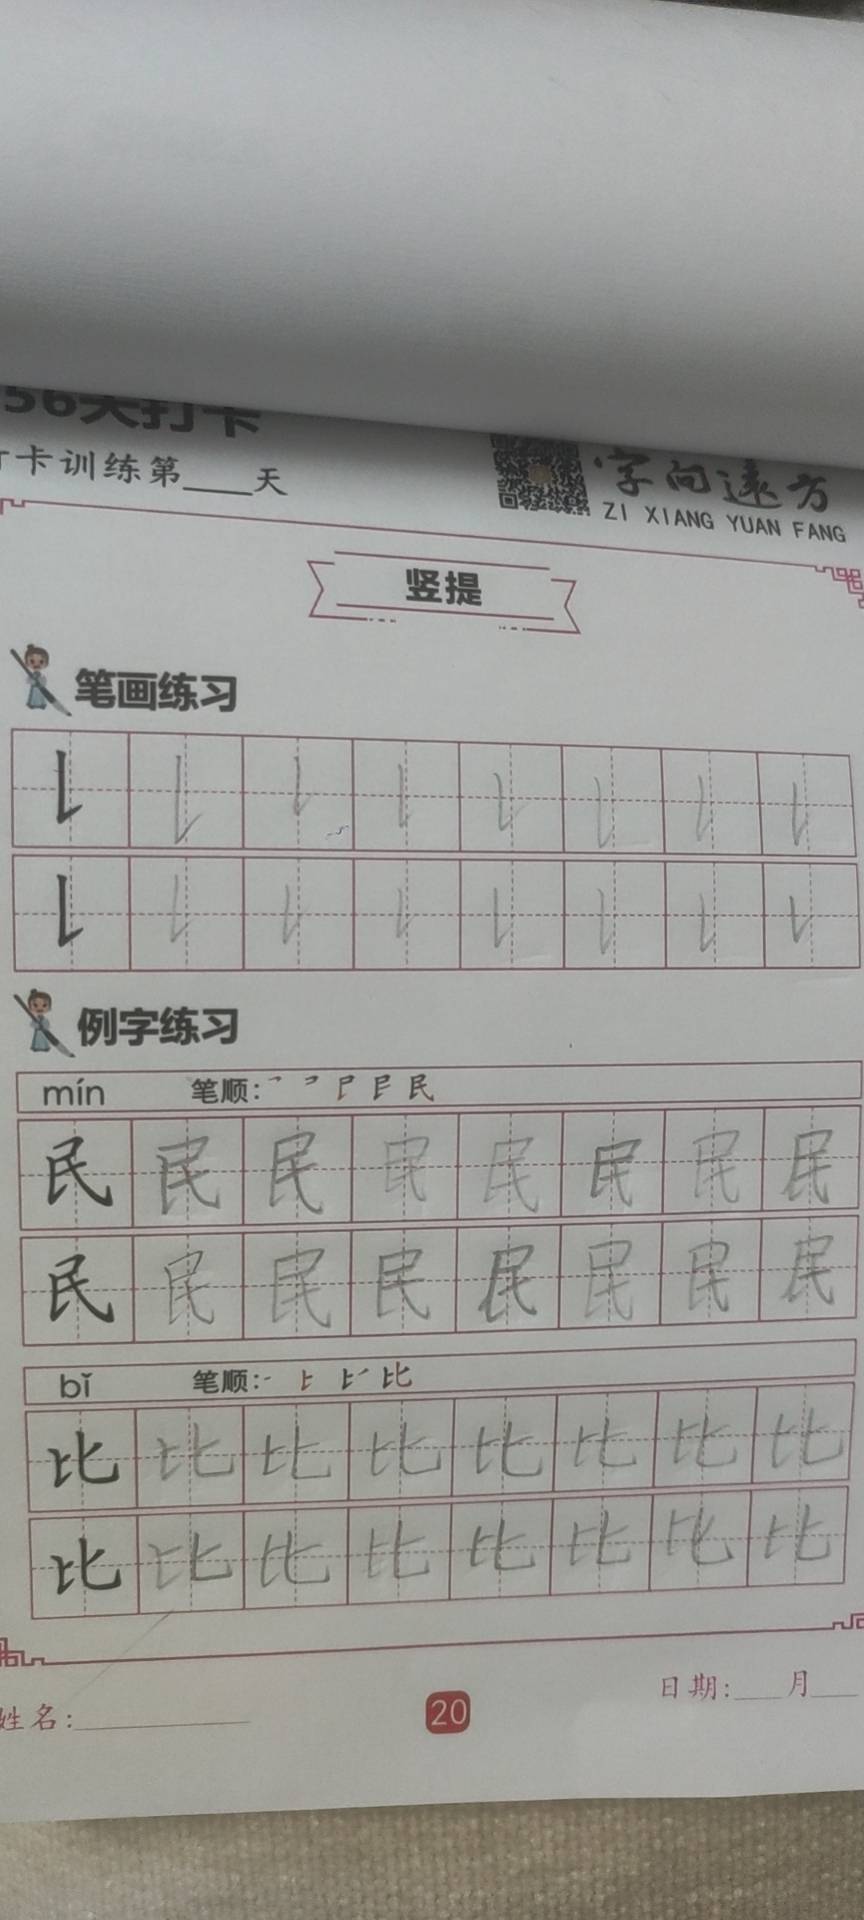 56天打卡
打卡训练第____天
字向远方
ZI XIANG YUAN FANG
竖提
笔画练习
例字练习
mín 笔顺: 民
民 民 民 民 民 民 民 民
民 民 民 民 民 民 民 民
bǐ 笔顺: 比
比 比 比 比 比 比 比 比
比 比 比 比 比 比 比 比
姓名:
20
日期: 月